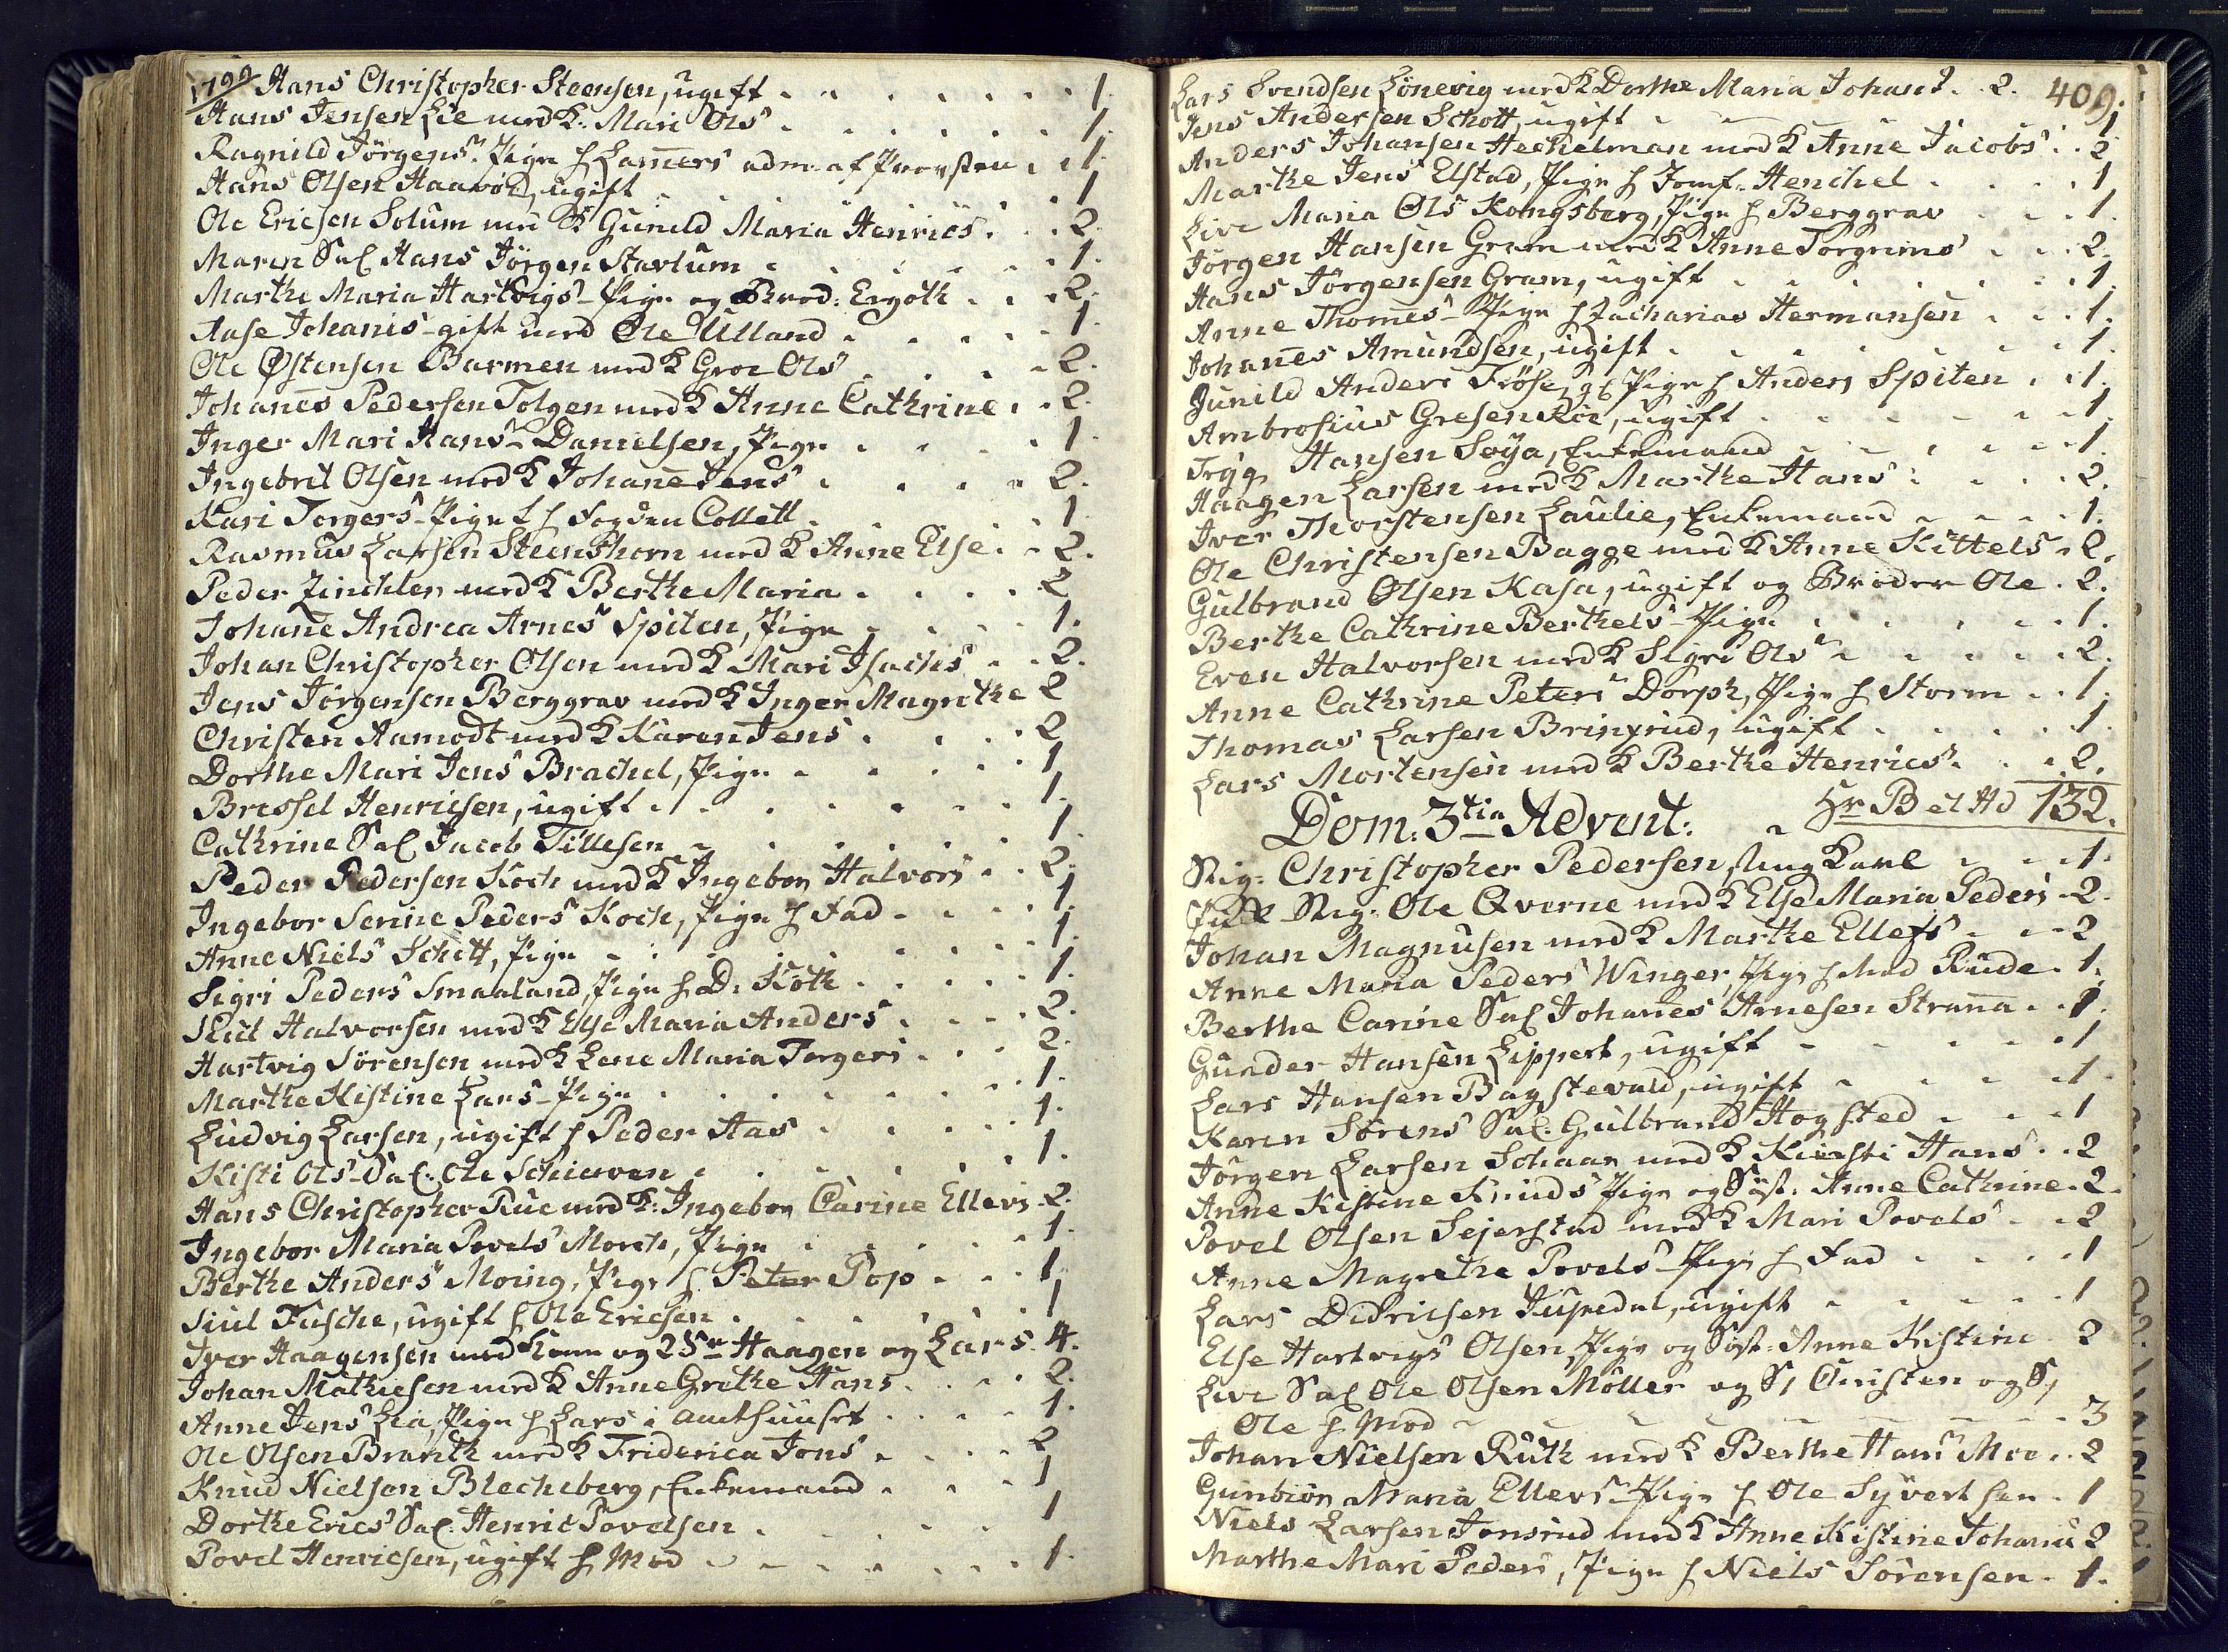 1799 Hans Christopher Steensen, ugift 1.
Hans Jensen Lie med K. Mari Ols 1.
Ragnild Jörgens Pige h Lamers adm. af Provsten 1.
Hans Olsen Haavöld, ugift 1
Ole Ericsen Solum med K Gunild Maria Henrics 2.
Maren Sal Hans Jörgen Stavlum 1.
Marthe Maria Hartvigs Pige og Brod: Ergoth 2.
Aase Johanis gift med Ole Ulland 1.
Ole Østensen Barmen med K Groe Ols 2.
Johanes Pedersen Tolgen med K Anne Cathrine 2.
Inger Mari Hans Danielsen, Pige 1.
Ingebret Olsen med K Johane Jens 2.
Kari Torgers Pige h Fogden Collett 1
Rasmus Larsen Steenshorn med K Anne Else 2.
Peder Zinchler med K Berthe Maria 2
Johane Andrea Arnes Spiten, Pige 1.
Johan Christopher Olsen med K Mari Isachs 2.
Jens Jörgensen Berggrav med K Inger Magrethe 2
Christen Aamodt med K Karen Jens 2
Dorthe Mari Jens Brachel, Pige 1
Bressel Henricsen, ugift 1.
Cathrine Sal Jacob Tillesen 1
Peder Pedersen Koch med K Ingebor Halvors 2.
Ingebor Serine Peders Koch, Pige h Fad 1.
Anne Niels Schott, Pige 1.
Sigri Peders Smaaland, Pige h D. Koth 1.
Juel Halvorsen med K Else Maria Anders 2.
Hartvig Sörensen med K Lene Maria Torgers 2.
Marthe Kistine Lars Pige 1.
Ludvig Larsen, ugift h Peder Aas 1.
Kisti Ols Sal. Ole Schierven 1.
Hans Christopher Rue med K. Ingebor Carine Ellevs 2.
Ingebor Maria Povels Morch, Pige 1.
Berthe Anders Moing, Pige h Peter Pop 1
Juul Fusche, ugift h Ole Ericsen 1
Iver Haagensen med Kone og 2 Sr Haagen og Lars 4.
Johan Mathiesen med K Anne Grethe Hans 2.
Anne Jens Lia, Pige h Lars i amthuuset 1.
Ole Olsen Branth med K Friderica Jons 2
Knud Nielsen Blecheberg, Enkemand 1
Dorthe Erics Sal. Henric Povelsen 1
Povel Henricsen, ugift h Mod 1.
409.
Lars Svendsen Lönevig med K Dorthe Maria Johans 2.
Jens Andersen Schott, ugift 1
Anders Johansen Hechelman med K Anne Jacobs 2
Marthe Jens Elstad, Pige h Jomf. Henchel 1
Live Maria Ols Kongsberg, Pige h Berggrav 1.
Jörgen Hansen Gram med K Anne Torgrims 2.
Hans Jörgensen Gram, ugift 1.
Anne Thomes Pige h Zacharias Hermansen 1.
Johanes Amundsen, ugift 1.
Gunild Anders Fiöse, gl Pige h Anders Spiten 1.
Ambrosius Gresen Röe, ugift 1.
Tryg Hansen Soya, Enkemand 1.
Haagen Larsen med K Marthe Hans 2.
Iver Thorstensen Laulie, Enkemand 1.
Ole Christensen Bagge med K Anne Kittels 2.
Gulbrand Olsen Kasa, ugift og Broder Ole 2.
Berthe Cathrine Berthels Pige 1.
Even Halvorsen med K Sigri Ols 2.
Anne Cathrine Peters Dorph, Pige h Storm 1.
Thomas Larsen Bringrud, ugift 1.
Lars Mortensen med K Berthe Henrics 2.
Dom: 3tia Advent: Hr B et Ad 132.
Stig. Christopher Pedersen, ung Karl 1.
Stig. Ole Qverne med K Else Maria Peders 2.
Johan Magnusen med K Marthe Ellefs 2
Anne Maria Peders Winger, Pige h Mad Rude 1.
Berthe Carine Sal Johanes Arnesen Strana 1.
Gunder Hansen Lippert, ugift 1
Lars Hansen Bagstevald, ugift 1
Karen Sörens Sal. Gulbrand Hogsted 1
Jörgen Larsen Schaar med K Kiersti Hans 2
Anne Kistine Knuds Pige og Söst. Anne Cathrine 2.
Povel Olsen Sejerstad med K Mari Povels 2
Anne Magrethe Povels Pige h Fad 1
Lars Didricsen Jupedal, ugift 1
Else Hartvigs Olsen, Pige og Söst. Anne Kistine 2
Live Sal Ole Olsen Möller og S, Christen og S,
Ole h Mod 3
Johan Nielsen Ruth med K Berthe Hans Moe 2
Gunbiör Maria Ellevs Pige h Ole Syvertsen 1
Niels Larsen Jonsrud med K Anne Kistine Johans 2
Marthe Mari Peders, Pige h Niels Sörensen 1.